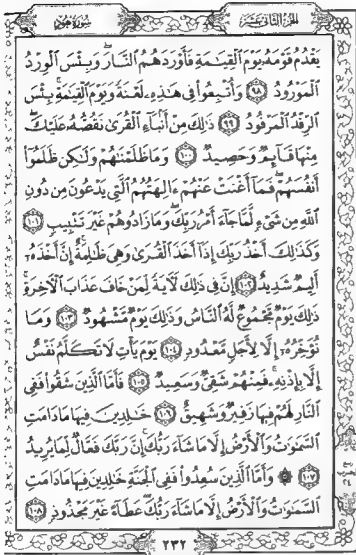 الجزء الثاني عشر
سورة هود
يَقْدُمُ قَوْمَهُۥ يَوْمَ ٱلْقِيَـٰمَةِ فَأَوْرَدَهُمُ ٱلنَّارَ ۖ وَبِئْسَ ٱلْوِرْدُ
ٱلْمَوْرُودُ ٩٨ وَأُتْبِعُوا۟ فِى هَـٰذِهِۦ لَعْنَةً وَيَوْمَ ٱلْقِيَـٰمَةِ ۚ بِئْسَ
ٱلرِّفْدُ ٱلْمَرْفُودُ ٩٩ ذَٰلِكَ مِنْ أَنۢبَآءِ ٱلْقُرَىٰ نَقُصُّهُۥ عَلَيْكَ ۖ
مِنْهَا قَآئِمٌ وَحَصِيدٌ ١٠٠ وَمَا ظَلَمْنَـٰهُمْ وَلَـٰكِن ظَلَمُوٓا۟
أَنفُسَهُمْ ۖ فَمَآ أَغْنَتْ عَنْهُمْ ءَالِهَتُهُمُ ٱلَّتِى يَدْعُونَ مِن دُونِ
ٱللَّهِ مِن شَىْءٍ لَّمَّا جَآءَ أَمْرُ رَبِّكَ ۖ وَمَا زَادُوهُمْ غَيْرَ تَتْبِيبٍ ١٠١
وَكَذَٰلِكَ أَخْذُ رَبِّكَ إِذَآ أَخَذَ ٱلْقُرَىٰ وَهِىَ ظَـٰلِمَةٌ ۚ إِنَّ أَخْذَهُۥٓ
أَلِيمٌ شَدِيدٌ ١٠٢ إِنَّ فِى ذَٰلِكَ لَـَٔايَةً لِّمَنْ خَافَ عَذَابَ ٱلْـَٔاخِرَةِ ۚ
ذَٰلِكَ يَوْمٌ مَّجْمُوعٌ لَّهُ ٱلنَّاسُ وَذَٰلِكَ يَوْمٌ مَّشْهُودٌ ١٠٣ وَمَا
نُؤَخِّرُهُۥٓ إِلَّا لِأَجَلٍ مَّعْدُودٍ ١٠٤ يَوْمَ يَأْتِ لَا تَكَلَّمُ نَفْسٌ
إِلَّا بِإِذْنِهِۦ ۚ فَمِنْهُمْ شَقِىٌّ وَسَعِيدٌ ١٠٥ فَأَمَّا ٱلَّذِينَ شَقُوا۟ فَفِى
ٱلنَّارِ لَهُمْ فِيهَا زَفِيرٌ وَشَهِيقٌ ١٠٦ خَـٰلِدِينَ فِيهَا مَا دَامَتِ
ٱلسَّمَـٰوَٰتُ وَٱلْأَرْضُ إِلَّا مَا شَآءَ رَبُّكَ ۚ إِنَّ رَبَّكَ فَعَّالٌ لِّمَا يُرِيدُ
١٠٧ ۞ وَأَمَّا ٱلَّذِينَ سُعِدُوا۟ فَفِى ٱلْجَنَّةِ خَـٰلِدِينَ فِيهَا مَا دَامَتِ
ٱلسَّمَـٰوَٰتُ وَٱلْأَرْضُ إِلَّا مَا شَآءَ رَبُّكَ ۖ عَطَآءً غَيْرَ مَجْذُوذٍ ١٠٨
٢٣٢